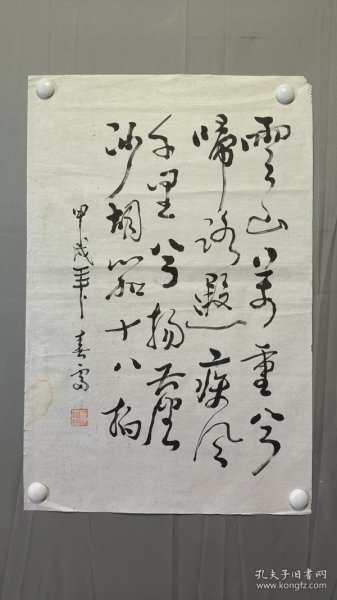 雲山萬重兮
歸路遐疾風
千里兮揚塵
沙胡笳十八拍
甲戌年春
孔夫子旧书网
www.kongfz.com